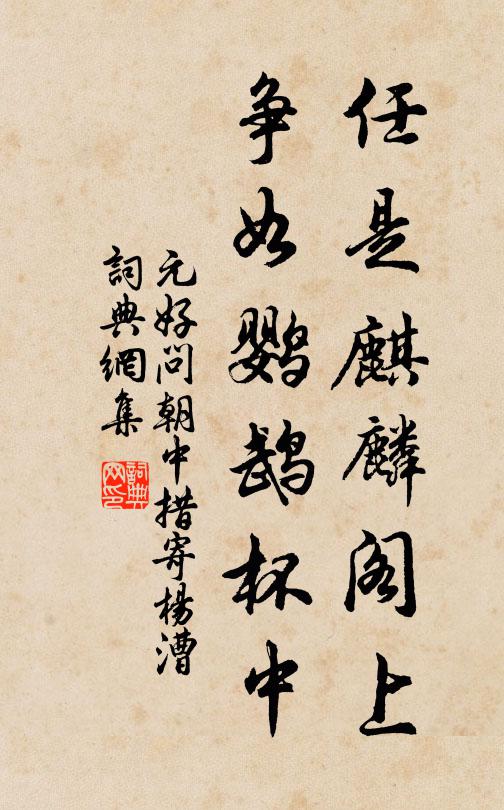 任是麒麟阁上
争如鹦鹉杯中
元好问朝中措寄杨漕
詞典網集
詞典网印